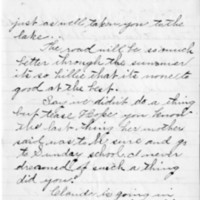 just as well, taken you to the
lake.
The road will be so much
better through the summer
it's so hillie that its none to
good at the best.
Say we didn't do a thing
but tease Hope you know
the last thing her mother
said was to be sure and go
to Sunday school & never
dreamed of such a thing
did you?
Claude is going in